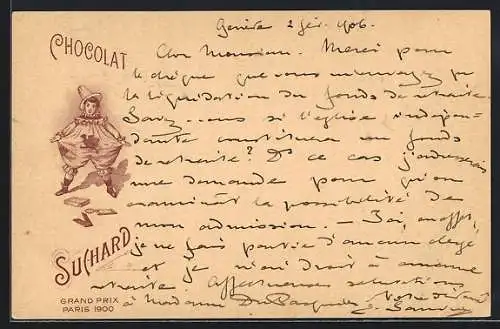 CHOCOLAT
SUCHARD
GRAND PRIX
PARIS 1900
Genève 2 fév. 1906.
Cher Monsieur. Merci pour
le chèque que vous m'envoyez pr
la liquidation du fonds de retraite.
Savez-vous si l'église indépen-
dante constituera un fonds
de retraite? Ds ce cas j'adresserais
une demande pour qu'on
examinât la possibilité de
mon admission. — Ici, en effet,
je ne fais partie d'aucun clergé
et je n'ai droit à aucune
retraite. Affectueuses salutations
à Madame Votre dévoué